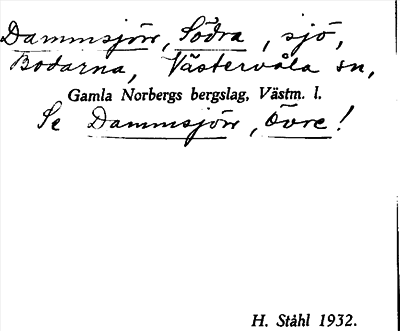 Dammsjön, Södra, sjö,
Bodarna, Västervåla sn,
Gamla Norbergs bergslag, Västm. l.
Se Dammsjön, Övre!
H. Ståhl 1932.